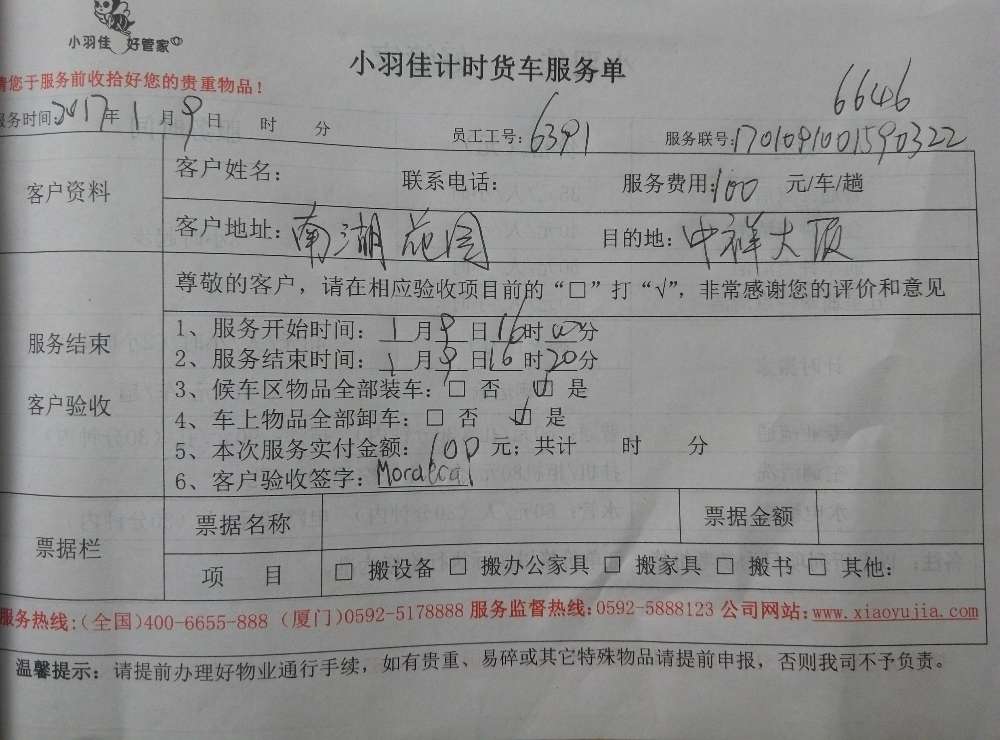 小羽佳 好管家
小羽佳计时货车服务单
请您于服务前收拾好您的贵重物品！
6646
服务时间:2017年1月9日 时 分 员工工号:6391 服务联号:1701091001590322
客户资料
客户姓名: 联系电话: 服务费用:100 元/车/趟
客户地址:南湖花园 目的地:中祥大厦
尊敬的客户，请在相应验收项目前的“□”打“√”，非常感谢您的评价和意见
服务结束
客户验收
1、服务开始时间: 1月9日16时00分
2、服务结束时间: 1月9日16时20分
3、候车区物品全部装车:□ 否 ☑ 是
4、车上物品全部卸车:□ 否 ☑ 是
5、本次服务实付金额: 100 元；共计 时 分
6、客户验收签字:
票据栏
票据名称 票据金额
项 目 □ 搬设备 □ 搬办公家具 □ 搬家具 □ 搬书 □ 其他:
服务热线:(全国)400-6655-888 (厦门)0592-5178888 服务监督热线:0592-5888123 公司网站:www.xiaoyujia.com
温馨提示: 请提前办理好物业通行手续，如有贵重、易碎或其它特殊物品请提前申报，否则我司不予负责。